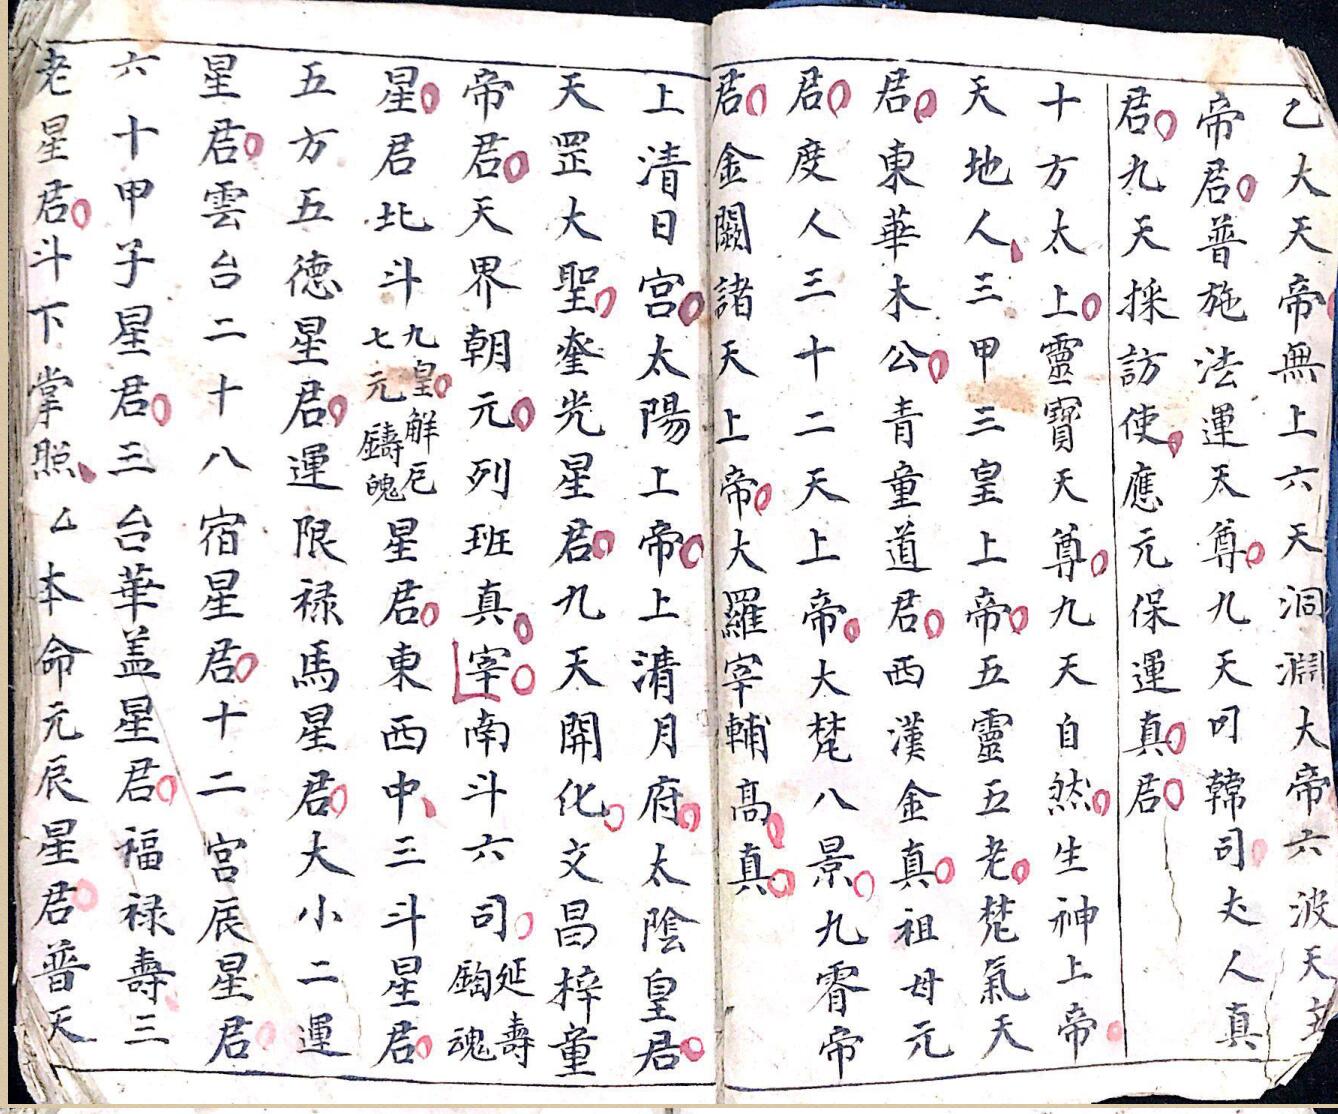 乙大天帝無上六天洞淵大帝六波天主
帝君普施法運天尊九天叩韓司丈人真
君九天採訪使應元保運真君
十方太上靈寶天尊九天自然生神上帝
天地人三甲三皇上帝五靈五老梵氣天
君東華木公青童道君西漢金真祖母元
君度人三十二天上帝大梵八景九霄帝
君金闕諸天上帝大羅宰輔高真
上清日宮太陽上帝上清月府太陰皇君
天罡大聖奎光星君九天開化文昌梓童
帝君天界朝元列班真宰南斗六司延壽鑄魂
星君北斗九皇解厄七元鑄魄星君東西中三斗星君
五方五德星君運限禄馬星君大小二運
星君雲台二十八宿星君十二宮辰星君
六十甲子星君三台華盖星君福禄壽三
老星君斗下掌照厶本命元辰星君普天